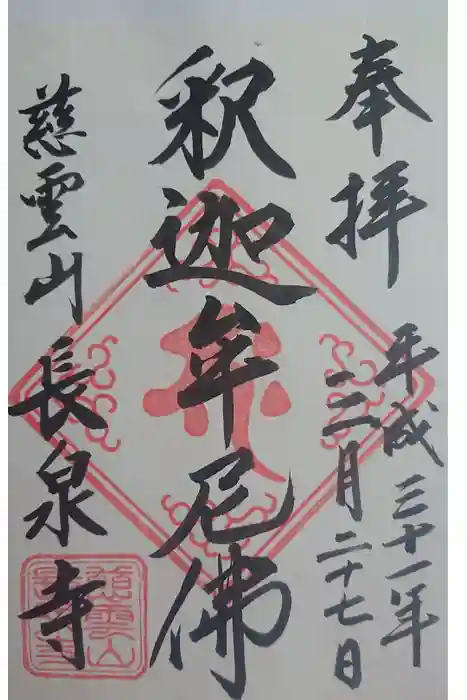 奉拝
平成三十一年
二月二十七日
釈迦牟尼佛
慈雲山
長泉寺